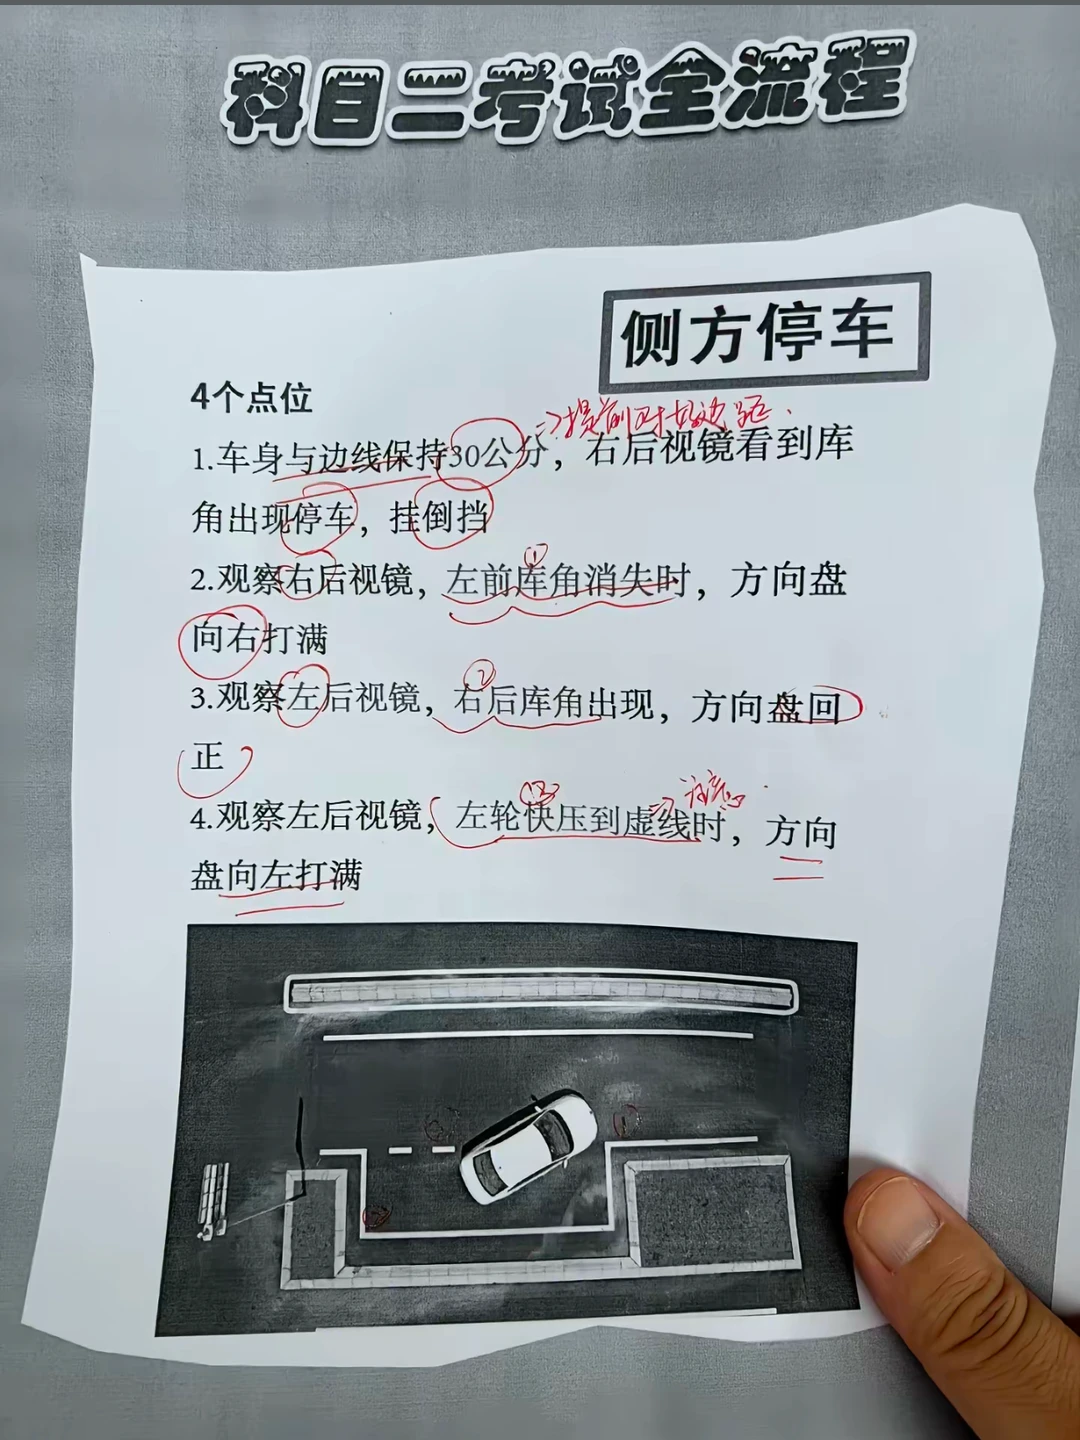 科目二考试全流程
侧方停车
4个点位
⇒提前对好边距.
1.车身与边线保持30公分，右后视镜看到库
角出现停车，挂倒挡
①
2.观察右后视镜，左前库角消失时，方向盘
向右打满
②
3.观察左后视镜，右后库角出现，方向盘回
正
⇒注意
4.观察左后视镜，左轮快压到虚线时，方向
盘向左打满
①